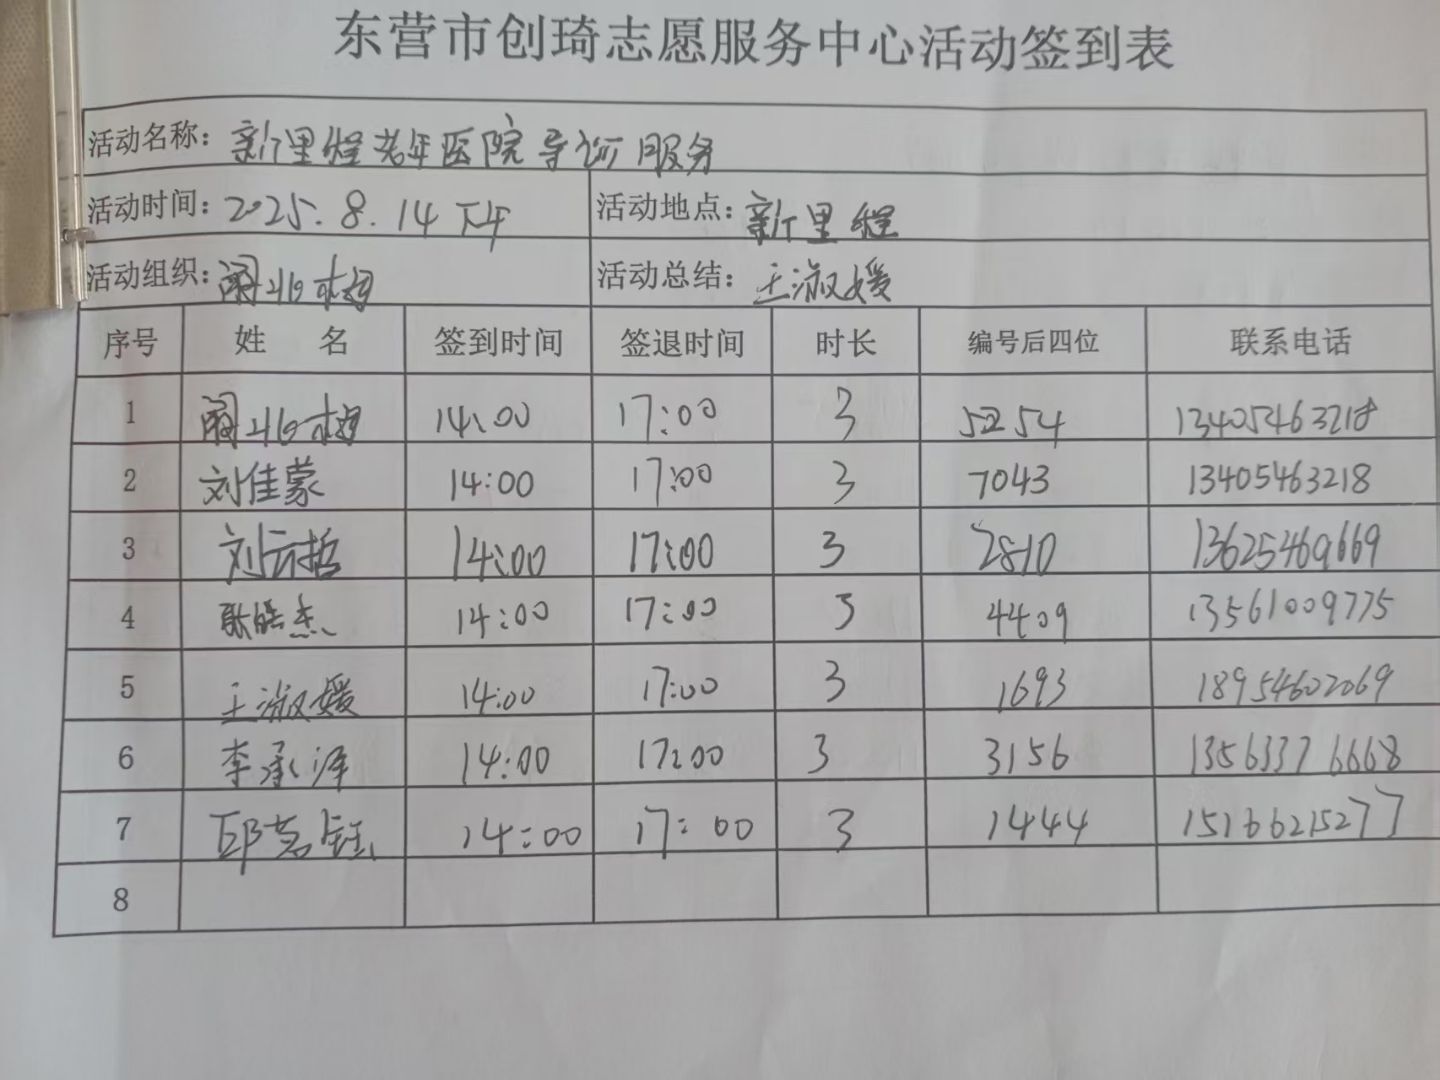 东营市创琦志愿服务中心活动签到表
活动名称：新里程老年医院导诊服务
活动时间：2025.8.14下午 活动地点：新里程
活动组织： 活动总结：王淑媛
序号 姓名 签到时间 签退时间 时长 编号后四位 联系电话
1 14:00 17:00 3 5254 13405463218
2 刘佳蒙 14:00 17:00 3 7043 13405463218
3 刘云哲 14:00 17:00 3 2810 13625469669
4 耿皓杰 14:00 17:00 3 4409 13561009775
5 王淑媛 14:00 17:00 3 1693 18954602069
6 李承泽 14:00 17:00 3 3156 13563376668
7 邱茗钰 14:00 17:00 3 1444 15166215277
8